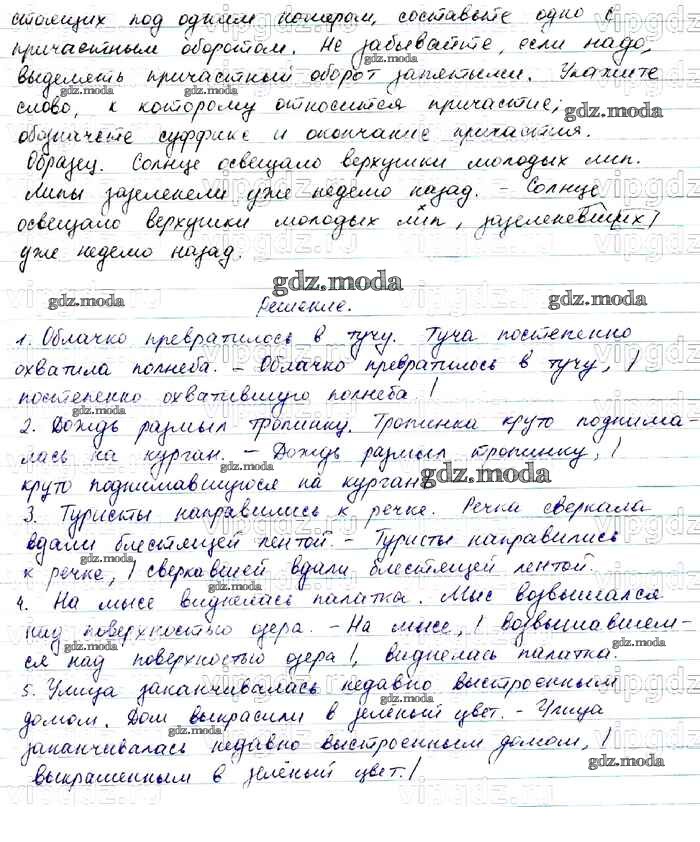 стоящих под одним номером, составьте одно с
причастным оборотом. Не забывайте, если надо,
выделять причастный оборот запятыми. Укажите
слово, к которому относится причастие;
обозначьте суффикс и окончание причастия.
Образец. Солнце освещало верхушки молодых лип.
Липы зазеленели уже неделю назад. – Солнце
освещало верхушки молодых лип, зазеленевших
уже неделю назад.
gdz.moda
Решение.
1. Облачко превратилось в тучу. Туча постепенно
охватила полнеба. – Облачко превратилось в тучу, |
постепенно охватившую полнеба. |
2. Дождь размыл тропинку. Тропинка круто поднима-
лась на курган. – Дождь размыл тропинку, |
круто поднимавшуюся на курган.
3. Туристы направились к речке. Речка сверкала
вдали блестящей лентой. – Туристы направились
к речке, | сверкавшей вдали блестящей лентой.
4. На мысе виднелась палатка. Мыс возвышался
над поверхностью озера. – На мысе, | возвышавшем-
ся над поверхностью озера |, виднелась палатка.
5. Улица заканчивалась недавно выстроенным
домом. Дом выкрасили в зелёный цвет. – Улица
заканчивалась недавно выстроенным домом, |
выкрашенным в зелёный цвет. |